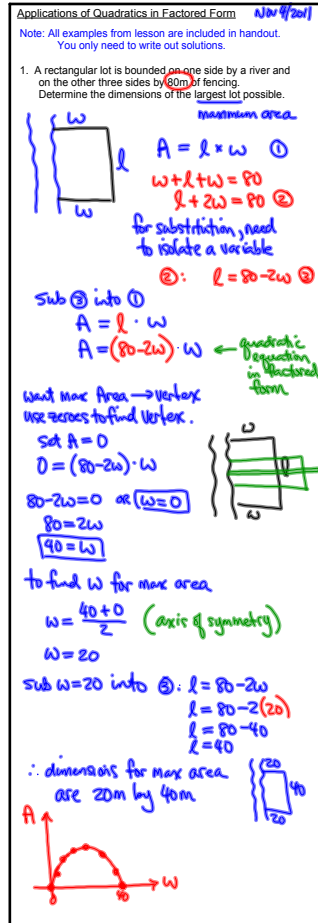 Applications of Quadratics in Factored Form Nov 4/2011
Note: All examples from lesson are included in handout.
You only need to write out solutions.
1. A rectangular lot is bounded on one side by a river and
on the other three sides by 80m of fencing.
Determine the dimensions of the largest lot possible.
maximum area
w
l
w
A = l × w ①
w + l + w = 80
l + 2w = 80 ②
for substitution, need
to isolate a variable
②: l = 80 - 2w ③
Sub ③ into ①
A = l · w
A = (80-2w) · w ← quadratic
equation
in factored
form
want max Area → vertex
use zeroes to find vertex.
set A = 0
0 = (80-2w) · w
80-2w=0 or w=0
80 = 2w
40 = w
w
l
w
to find w for max area
w = 40+0 / 2 (axis of symmetry)
w = 20
sub w=20 into ③: l = 80-2w
l = 80-2(20)
l = 80-40
l = 40
∴ dimensions for max area
are 20m by 40m
20
40
20
A
0 40 w